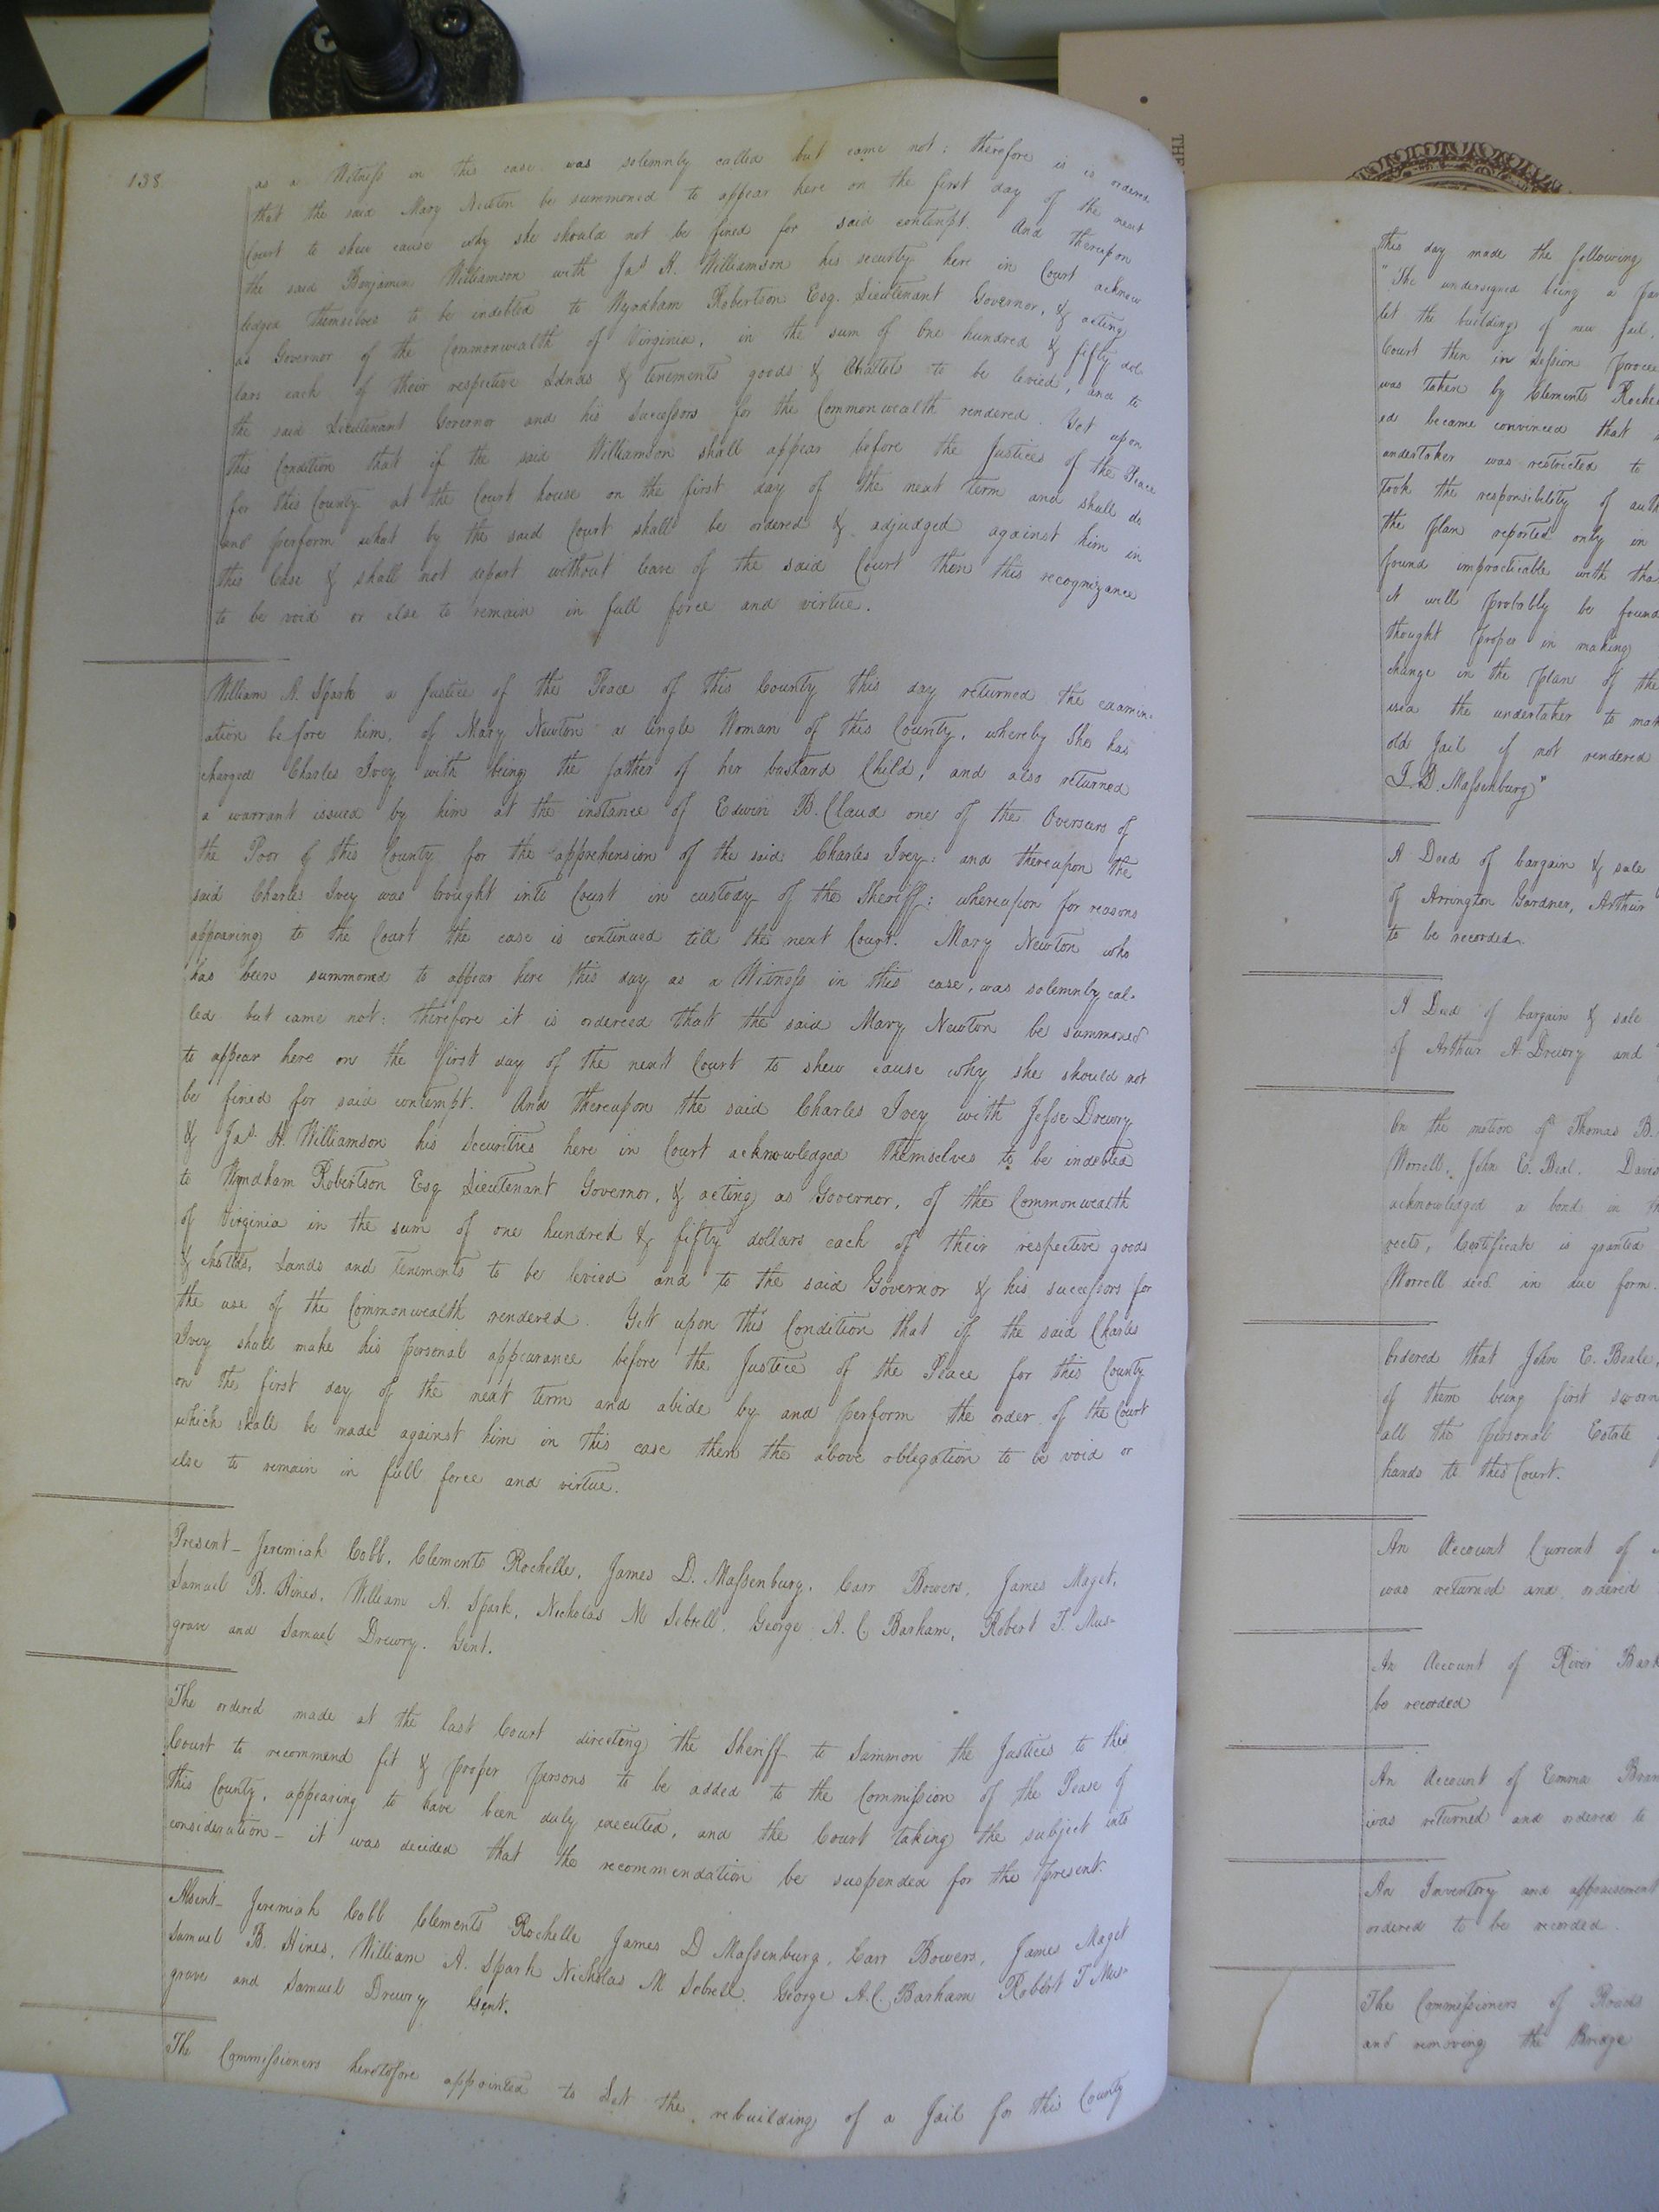 138
as a Witness in this case was solemnly called but came not: therefore is is ordered
that the said Mary Newton be summoned to appear here on the first day of the next
Court to shew cause why she should not be fined for said contempt. And thereupon
the said Benjamin Williamson with Jas H. Williamson his security here in Court acknow
ledged themselves to be indebted to Wyndham Robertson Esq. Lieutenant Governor, & acting
as Governor of the Commonwealth of Virginia, in the sum of One hundred & fifty dol-
lars each of their respective Lands & tenements goods & Chattels to be levied, and to
the said Lieutenant Governor and his Successors for the Commonwealth rendered. Yet upon
this Condition that if the said Williamson shall appear before the Justices of the Peace
for this County at the Court house on the first day of the next term and shall do
and perform what by the said Court shall be ordered & adjudged against him in
this Case & shall not depart without leave of the said Court then this recognizance
to be void or else to remain in full force and virtue.
William A. Spark a Justice of the Peace of this County this day returned the examin-
ation before him, of Mary Newton a single Woman of this County, whereby She has
charged Charles Ivey with being the father of her bastard Child, and also returned
a warrant issued by him at the instance of Edwin B. Claud one of the Overseers of
the Poor of this County for the apprehension of the said Charles Ivey: and thereupon the
said Charles Ivey was brought into Court in custody of the Sheriff: whereupon for reasons
appearing to the Court the case is continued till the next Court. Mary Newton who
has been summoned to appear here this day as a Witness in this case, was solemnly cal-
led but came not: therefore it is ordered that the said Mary Newton be summoned
to appear here on the first day of the next Court to shew cause why she should not
be fined for said contempt. And thereupon the said Charles Ivey with Jesse Drewry
& Jas. H. Williamson his Securities here in Court acknowledged themselves to be indebted
to Wyndham Robertson Esq Lieutenant Governor, & acting as Governor, of the Commonwealth
of Virginia in the sum of one hundred & fifty dollars each of their respective goods
& chattles, Lands and Tenements to be levied and to the said Governor & his successors for
the use of the Commonwealth rendered. Yet upon this Condition that if the said Charles
Ivey shall make his personal appearance before the Justice of the Peace for this County
on the first day of the next term and abide by and perform the order of the Court
which shall be made against him in this case then the above obligation to be void or
else to remain in full force and virtue.
Present – Jeremiah Cobb, Clements Rochelle, James D. Massenburg, Carr Bowers, James Maget,
Samuel B. Hines, William A. Spark, Nicholas M Sebrell, George A. C. Barham, Robert T. Mus-
grave and Samuel Drewry. Gent.
The ordered made at the last Court directing the Sheriff to Summon the Justices to this
Court to recommend fit & proper persons to be added to the Commission of the Pease of
this County, appearing to have been duly executed, and the Court taking the subject into
consideration – it was decided that the recommendation be suspended for the present.
Absent – Jeremiah Cobb Clements Rochelle James D Massenburg, Carr Bowers, James Maget
Samuel B. Hines, William A. Spark Nicholas M Sebrell. George A. C. Barham Robert T Mus-
grave and Samuel Drewry Gent.
The Commissioners heretofore appointed to Let the rebuilding of a Jail for this County
this day made the following
"The undersigned being a
let the building of new Jail,
Court then in session
was taken by Clements
ed became convinced that
undertaker was restricted to
took the responsibility of
the plan reported only in
found impracticable with
it will probably be found
thought proper in making
change in the plan of the
the undertaker to
old Jail if not rendered
J. D. Massenburg"
A Deed of bargain & sale
of Arrington Gardner, Arthur
to be recorded.
A Deed of bargain & sale
of Arthur A Drewry and
On the motion of Thomas B.
Worrell, John E. Beal.
acknowledged a bond in
rects, Certificate is granted
Worrell decd. in due form.
Ordered that John E. Beale,
of them being first sworn
all the personal Estate
hands to this Court.
An Account Current of
was returned and ordered
An Account of River
be recorded
An Account of Emma
was returned and ordered to
An Inventory and appraisement
ordered to be recorded.
The Commissioners of Roads
and removing the Bridge